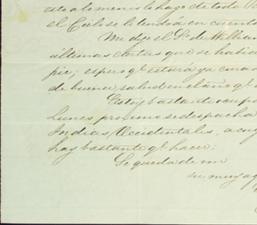 esto a lo menos lo hago de todo
el Cielo se le tendrá en cuenta
Me dijo el Sr. de William
últimas cartas que se había
pie; espero qe. estará ya
de buena salud en el año qe.
Estoy bastante ocupa
Lunes próximo se despacha
Indias Occidentales, a cuy
hay bastante qe. hacer.
Se queda de
su muy a